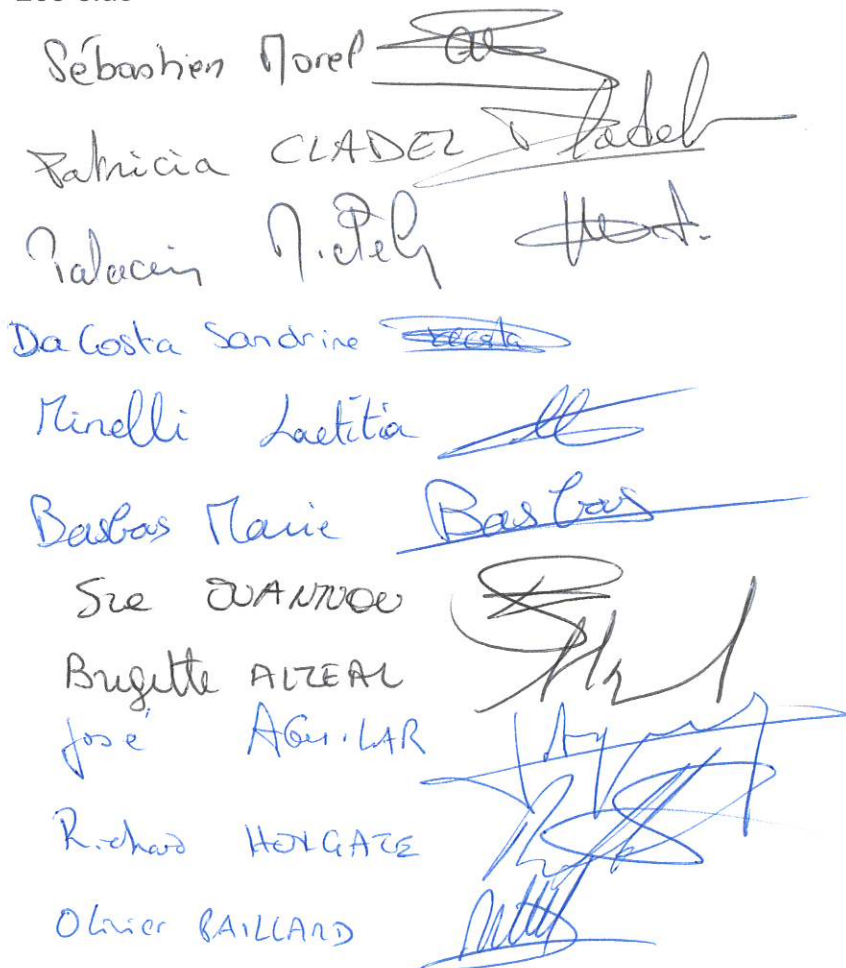 Sébastien Morel
Patricia CLADEL Cladel
Palacin
Da Costa Sandrine Dacosta
Minelli Laetitia
Basbas Marie Basbas
Brigitte ALZEAL
José AGUILAR
Richard HOLGATE
Olivier BAILLARD